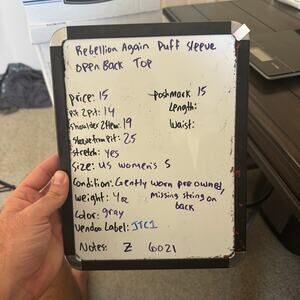 Rebellion Again Puff Sleeve
Open Back Top
price: 15
postmark 15
pit 2 pit: 14
Length:
Shoulder 2 Hem: 19
Waist:
Sleeve from pit: 25
stretch: yes
Size: US women's S
Condition: Gently worn preowned,
missing string on
back
weight: 4oz
Color: gray
Vendoo Label: JTC1
Notes: Z 6021